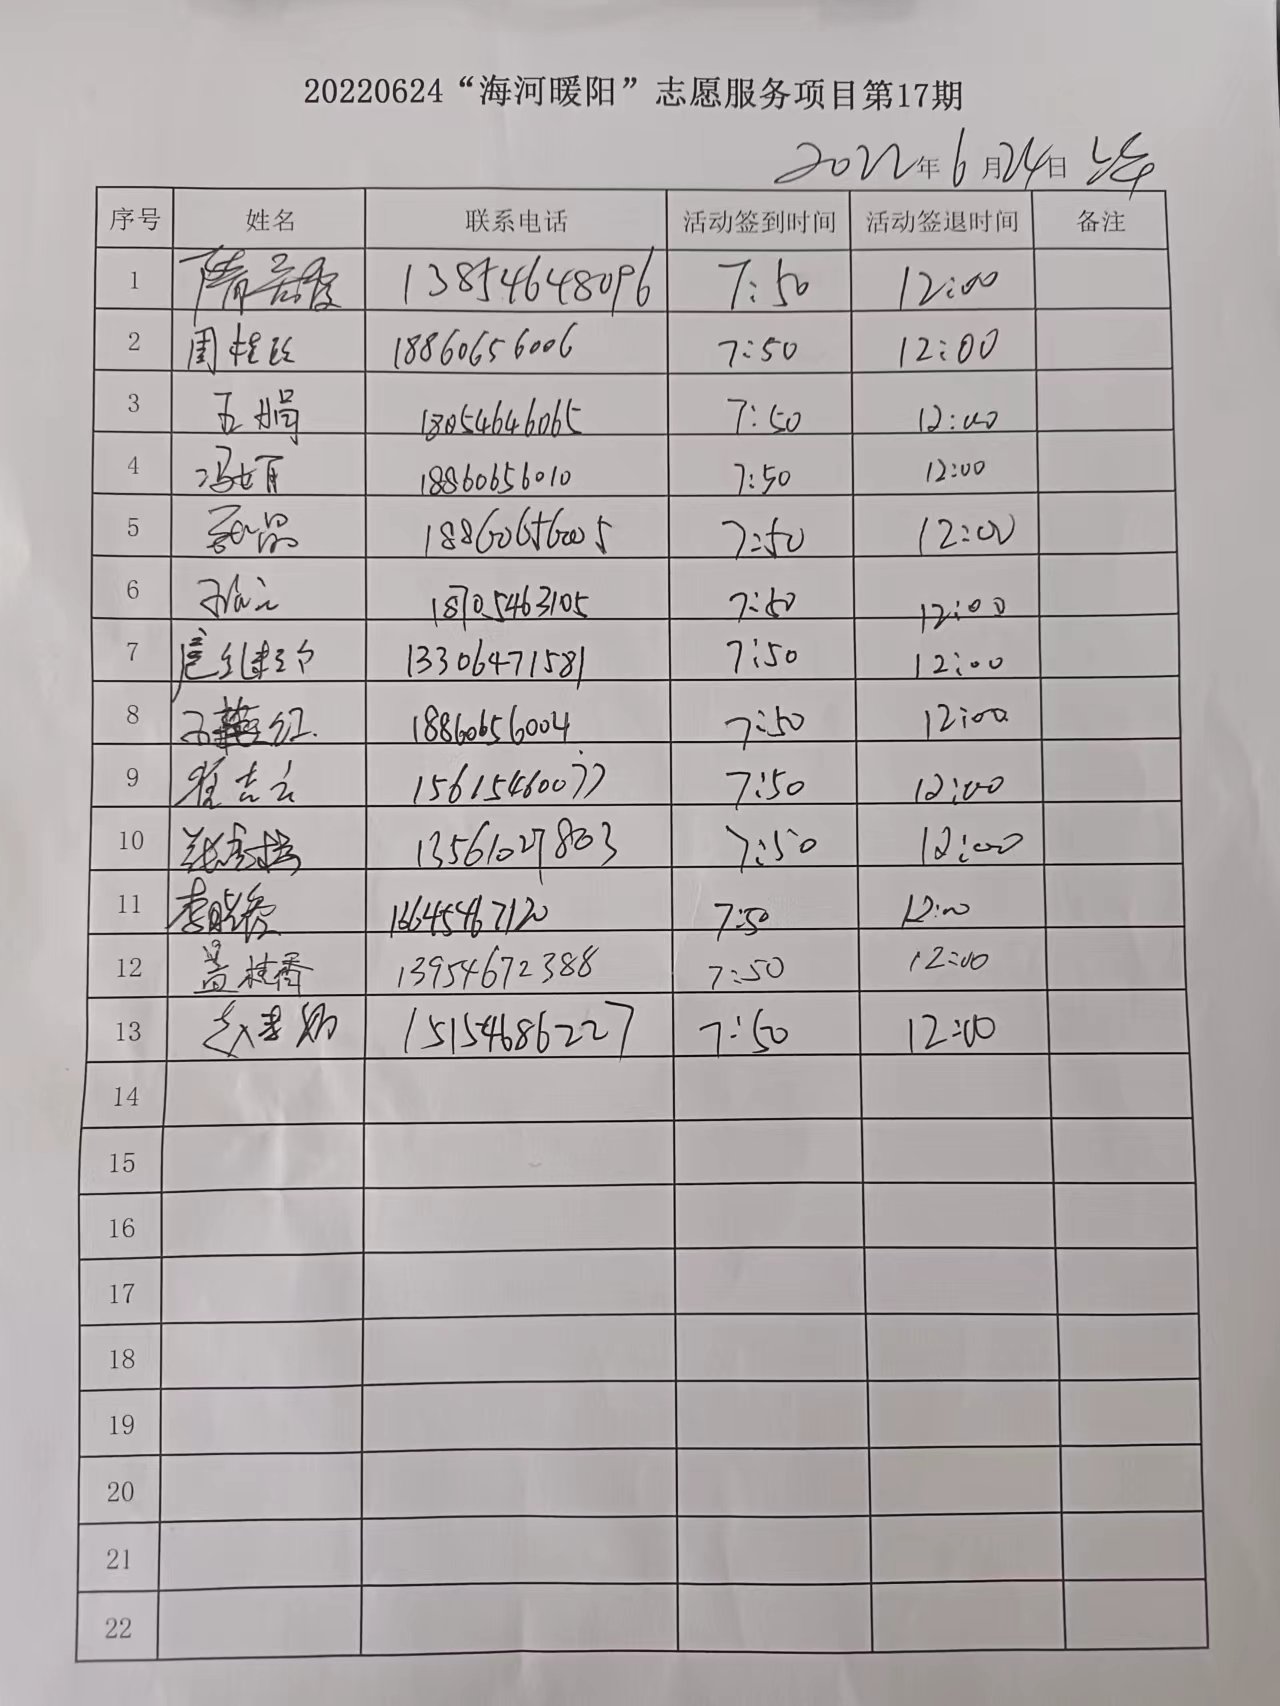 20220624“海河暖阳”志愿服务项目第17期
2022年6月24日
序号 姓名 联系电话 活动签到时间 活动签退时间 备注
1 13854648096 7:50 12:00
2 周桂欣 18860656006 7:50 12:00
3 王娟 18054646065 7:50 12:00
4 冯娟 18860656010 7:50 12:00
5 18860656005 7:50 12:00
6 18705463105 7:50 12:00
7 13306471581 7:50 12:00
8 红 18860656004 7:50 12:00
9 崔吉云 15615460077 7:50 12:00
10 13561027803 7:50 12:00
11 李晓 16645467120 7:50 12:00
12 盖桂香 13954672388 7:50 12:00
13 赵 15154686227 7:50 12:00
14
15
16
17
18
19
20
21
22